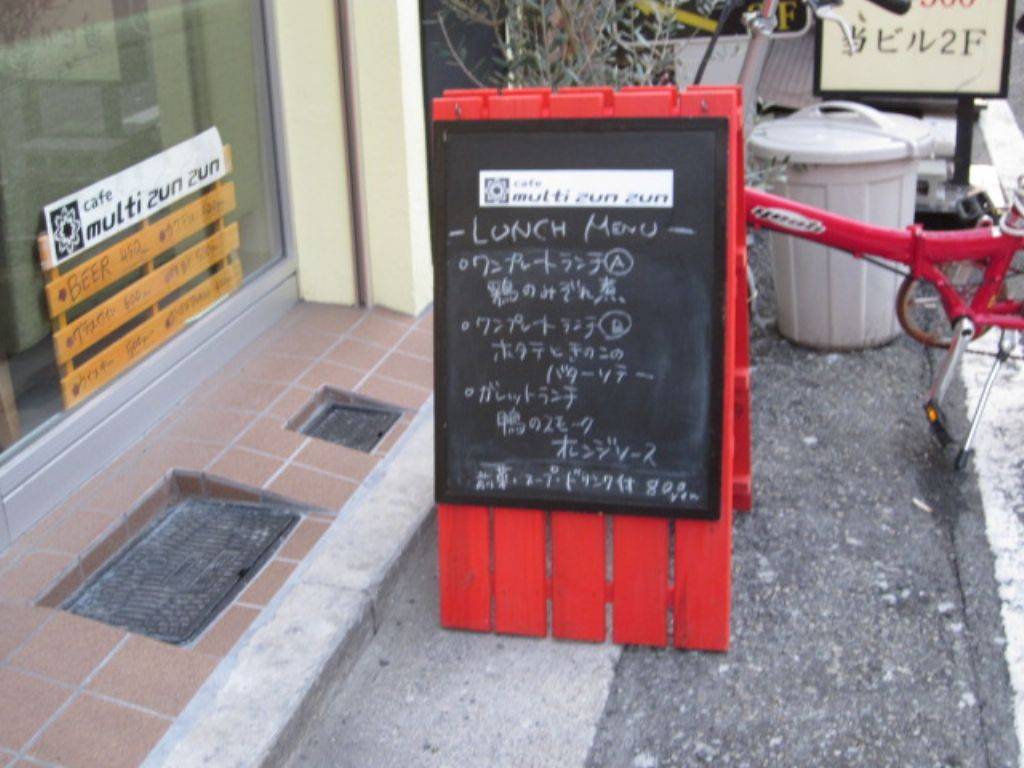 cafe
multi zun zun
BEER 450
cafe
multi zun zun
- LUNCH MENU -
○ワンプレートランチⒶ
鶏のみぞれ煮
○ワンプレートランチⒷ
ホタテときのこの
バターソテー
○ガレットランチ
鴨のスモーク
オレンジソース
前菜・スープ・ドリンク付 800yen
yeah
500
当ビル2F